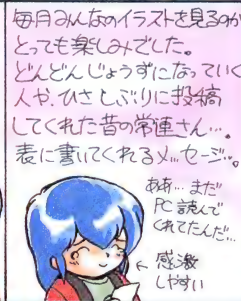 毎月みんなのイラストを見るのが
とっても楽しみでした。
どんどんじょうずになっていく
人や、ひさしぶりに投稿
してくれた昔の常連さん…。
表に書いてくれるメッセージ…。
ああ…まだ
PC読んで
くれてたんだ…
←感激
しやすい